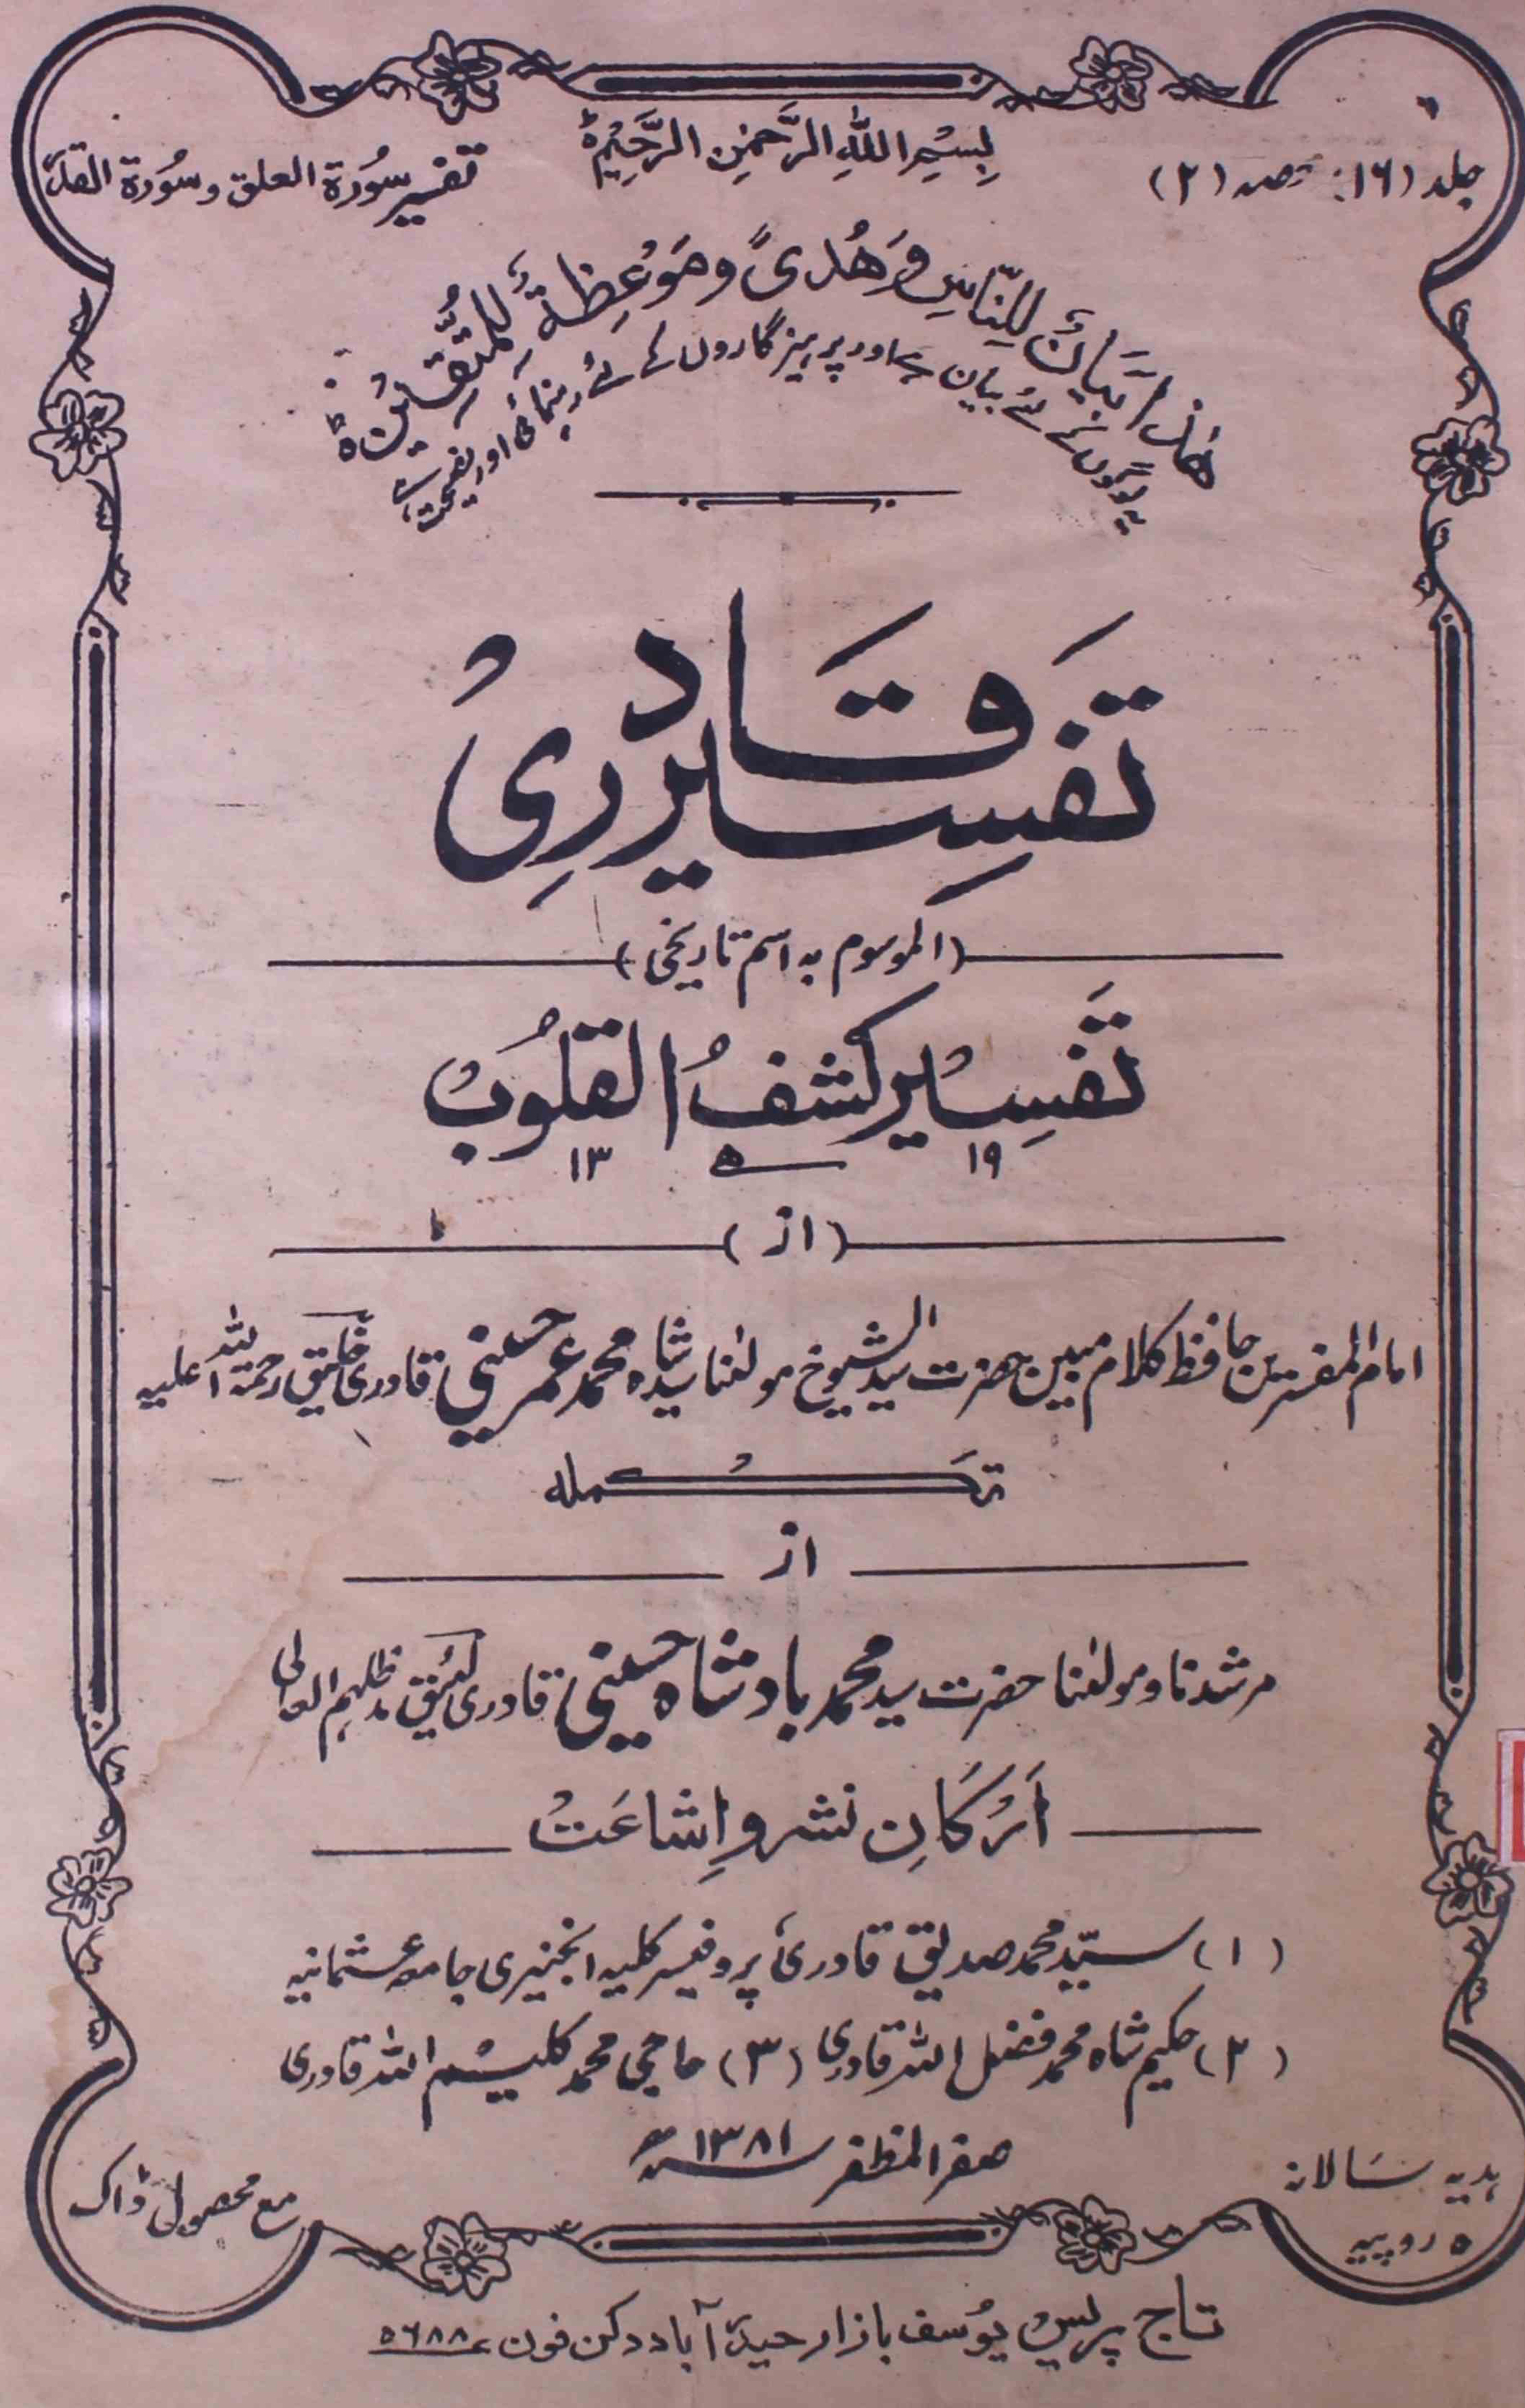 جلد (۱۶) حصہ (۲)
بِسْمِ اللهِ الرَّحْمٰنِ الرَّحِيْمِ
تفسیر سُورۃ العلق و سُورۃ القدر
هٰذَا بَيَانٌ لِّلنَّاسِ وَهُدًى وَّمَوْعِظَةٌ لِّلْمُتَّقِيْنَ
لوگوں کے لئے بیان ہے اور پرہیزگاروں کے لئے رہنمائی اور نصیحت ہے
تفسیر قادری
(الموسوم بہ اسم تاریخی)
تفسیر کشف القلوب
۱۹ ھ ۱۳
(از)
امام المفسرین حافظ کلام مبین حضرت سید الشیوخ مولٰنا سید شاہ محمد عمر حسینی قادری خلیق رحمۃ اللہ علیہ
تکملہ
از
مرشدنا و مولٰنا حضرت سید محمد بادشاہ حسینی قادری لئیق مدظلہم العالی
اَرکانِ نشر و اِشاعَت
(۱) سیّد محمد صدیق قادری پروفیسر کلیہ انجنیری جامعہ عثمانیہ
(۲) حکیم شاہ محمد فضل اللہ قادری (۳) حاجی محمد کلیم اللہ قادری
صفر المظفر ۱۳۸۱ھ
ہدیہ سالانہ
۵ روپیہ
مع محصول ڈاک
تاج پریس یُوسف بازار حیدرآباد دکن فون ۵۶۸۸